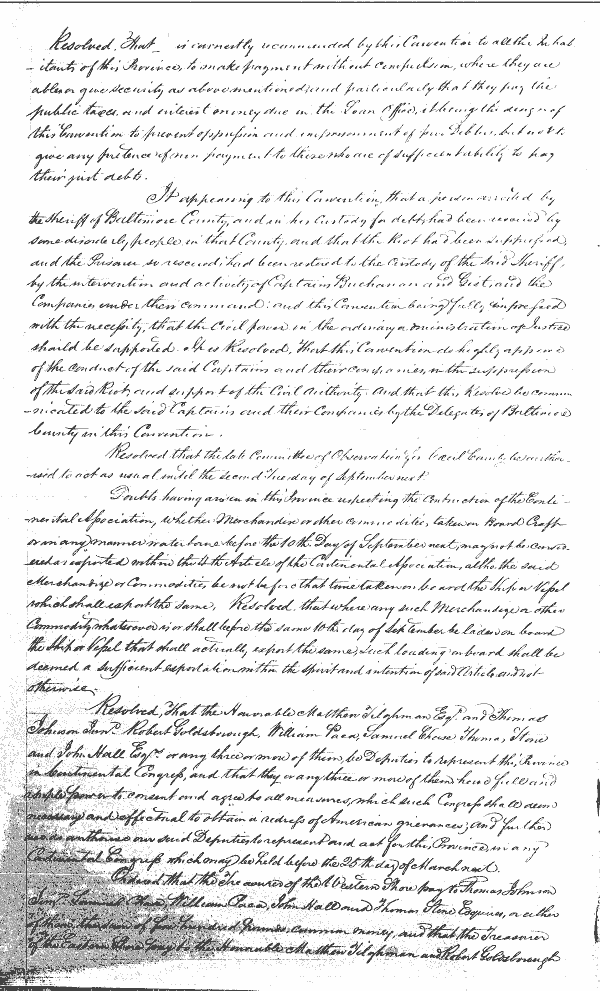 Resolved, That is earnestly recommended by this Convention to all the Inhab
-itants of this Province, to make payment without compulsion, where they are
able or give security as above mentioned, and particularly that they pay the
public taxes, and interest money due in the Loan Office, it being the design of
this Convention to prevent oppression and imprisonment of poor Debtors, but not to
give any pretence of non payment to those who are of sufficient ability to pay
their just debts.
It appearing to this Convention, that a person arrested by
the Sheriff of Baltimore County, and in his Custody for debts, had been rescued by
some disorderly people in that County, and that the Riot had been suppressed,
and the Prisoner so rescued, had been restored to the Custody of the said Sheriff,
by the intervention and activity of Captains Buchanan and Gist, and the
Companies under their command: and this Convention being fully impressed
with the necessity, that the Civil power in the ordinary administration of Justice
should be supported. It is Resolved, That this Convention do highly approve
of the conduct of the said Captains and their companies in the suppression
of the said Riot, and support of the Civil Authority. And that this Resolve be commu
-nicated to the said Captains and their Companies by the Delegates of Baltimore
County in this Convention.
Resolved that the late Committee of Observation for Cecil County be autho
-rised to act as usual until the second Tuesday of September next
Doubts having arisen in this Province respecting the Contruction of the Conti-
-nental Association, whether Merchandise or other commodities, taken on Board Craft
or in any manner water borne before the 10th Day of September next, may not be consid-
ered as exported within the 4th Article of the Continental Association, altho the said
Merchandize or Commodities be not before that time taken on board the Ship or Vessel
which shall export the same, Resolved, that where any such Merchandize or other
Commodity whatsoever is or shall before the same 10th day of September be laden on board
the Ship or Vessel that shall actually export the same, such loading on board shall be
deemed a sufficient exportation within the spirit and intention of said Article and not
otherwise.
Resolved, That the Honourable Matthew Tilghman Esqr. and Thomas
Johnson Junr. Robert Goldsborough, William Paca, Samuel Chase Thomas Stone
and John Hall Esqrs. or any three or more of them, be Deputies to represent this Province
in Continental Congress, and that they or any three or more of them have full and
ample power to consent and agree to all measures, which such Congress shall deem
necessary and effectual to obtain a redress of American grievances; and further
we do authorise our said Deputies to represent and act for this Province in any
Continental Congress which may be held before the 25th day of March next.
Ordered that the Treasurer of the Western Shore pay to Thomas Johnson
Junr. Samuel Chase, William Paca, John Hall and Thomas Stone Esquires, or either
of them, the sum of hundred Pounds, common money, and that the Treasurer
of the Eastern Shore pay to the Honourable Matthew Tilghman and Robert Goldsborough